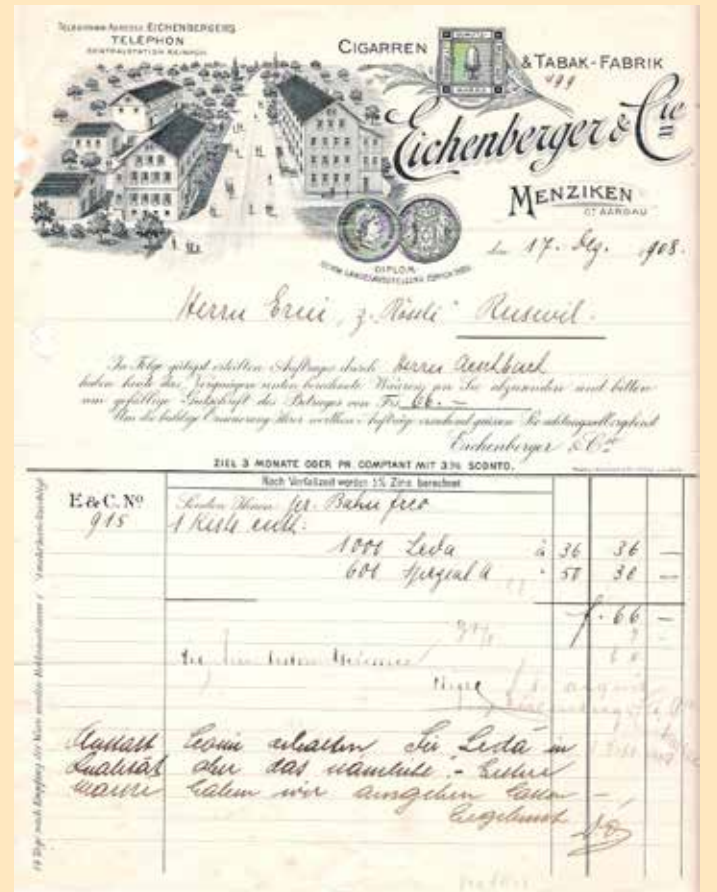 TELEGRAMM-ADRESSE: EICHENBERGERS
TELEPHON
CENTRALSTATION REINACH
CIGARREN & TABAK-FABRIK
499
Eichenberger & Cie
MENZIKEN
CT AARGAU
DIPLOM
SCHWEIZ. LANDESAUSSTELLUNG ZÜRICH 1883
den 17. Dez. 1908.
Herrn Erni, z. "Rössli" Ruswil.
In Folge gütigst erteilten Auftrages durch Herrn Aeschbach
haben heute das Vergnügen unten berechnete Waaren an Sie abzusenden und bitten
um gefällige Gutschrift des Betrages von Frs 66.—
Um die baldige Erneuerung Ihrer werthen Aufträge ersuchend grüssen Sie achtungsvoll ergebenst
Eichenberger & Cie
ZIEL 3 MONATE ODER PR. COMPTANT MIT 3% SCONTO.
Nach Verfallzeit werden 5% Zins berechnet
E & C. No
Senden Ihnen pr. Bahn frco
915
1 Kiste enth:
1000 Leda à 36 36 —
600 Spezial A " 50 30 —
f. 66 —
Anstatt Leoni erhalten Sie Leda in
Qualität aber das nämliche. - Erstere
Marke haben wir ausgehen lassen —
Ergebenst